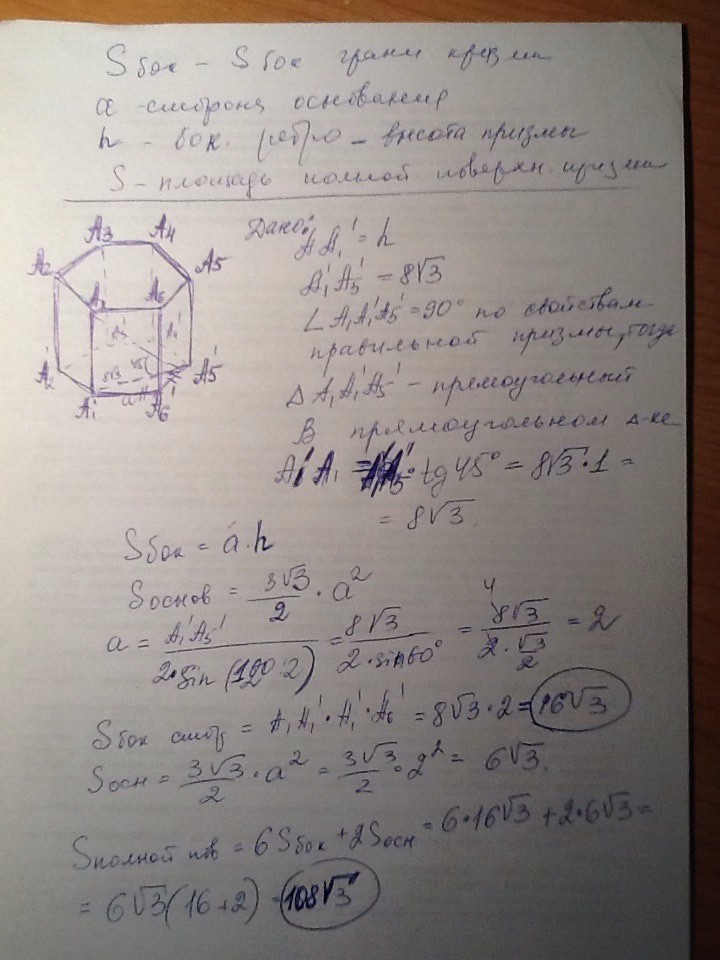 Sбок - Sбок грани призмы
a - сторона основания
h - бок. ребро - высота призмы
S - площадь полной поверхн. призмы
A3 A4
A2 A5
A1 A6
8√3 A4'
A2' 8√3 45° A5'
a
A1' A6'
Дано:
AA1' = h
A1'A5' = 8√3
∠A1A1'A5' = 90° по свойствам
правильной призмы, тогда
△ A1A1'A5' - прямоугольный
В прямоугольном △-ке
A1'A1 = A1'A5' · tg 45° = 8√3 · 1 =
= 8√3.
Sбок = a·h
Sоснов = 3√3/2 · a²
a = A1'A5' / 2·sin(120:2) = 8√3 / 2·sin60° = 8√3 / 2·√3/2 = 2
4
Sбок = A1A1' · A1'·A6' = 8√3·2 = 16√3
Sосн = 3√3/2 · a² = 3√3/2 · 2² = 6√3.
Sполной пов = 6Sбок + 2Sосн = 6·16√3 + 2·6√3 =
= 6√3(16+2) = 108√3